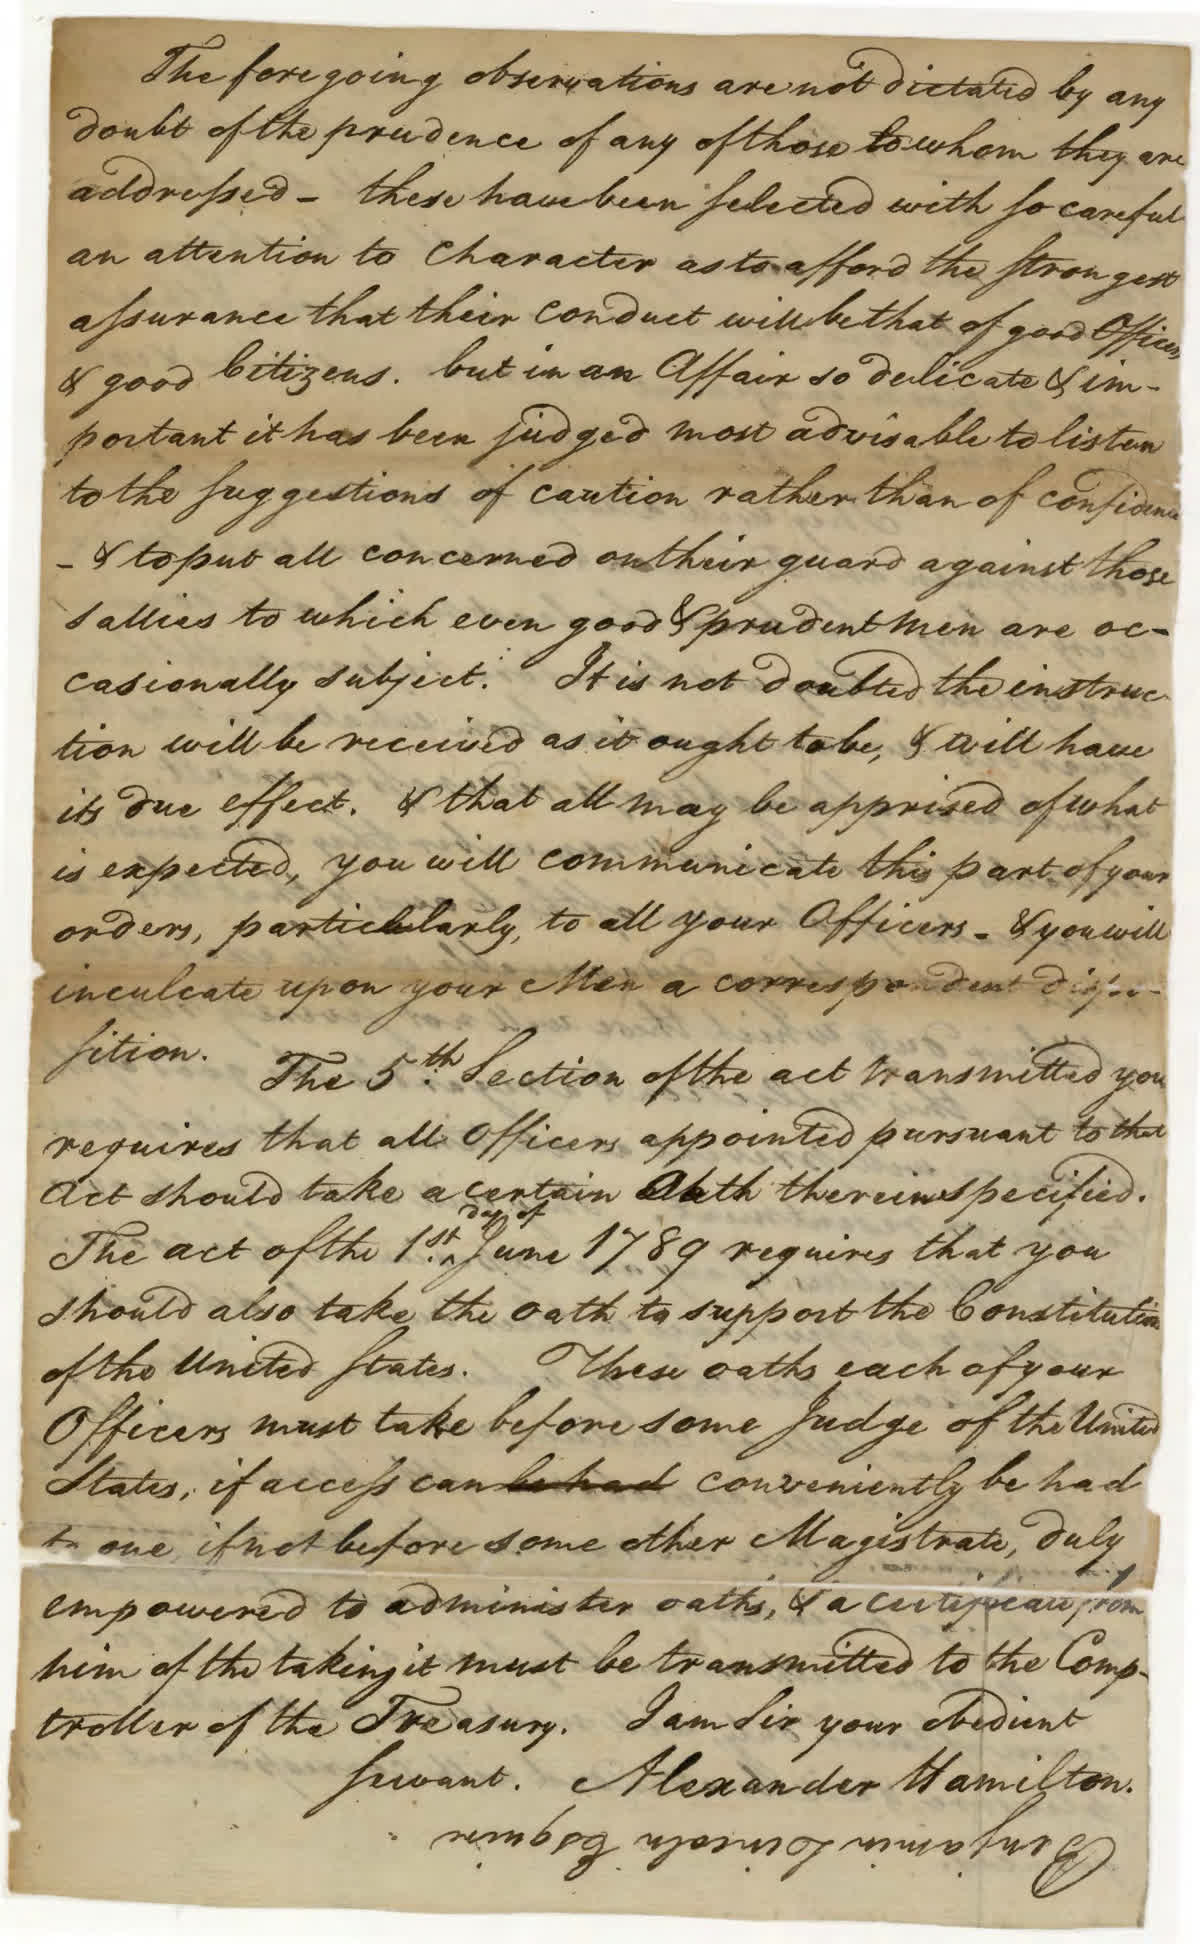 The foregoing observations are not dictated by any
doubt of the prudence of any of those to whom they are
addressed - these have been selected with so careful
an attention to Character as to afford the strongest
assurance that their conduct will be that of good Officers
& good Citizens. but in an Affair so delicate & im-
portant it has been judged most advisable to listen
to the suggestions of caution rather than of confidence
- & to put all concerned on their guard against those
sallies to which even good & prudent men are oc-
casionally subject. It is not doubted the instruc-
tion will be received as it ought to be, & will have
its due effect. & that all may be apprised of what
is expected, you will communicate this part of your
orders, particularly, to all your Officers - & you will
inculcate upon your Men a correspondent dispo-
sition.
The 5th. Section of the act transmitted you
requires that all Officers appointed pursuant to that
Act should take a certain Oath therein specified.
day of
The act of the 1st. ^ June 1789 requires that you
should also take the oath to support the Constitution
of the United States. These oaths each of your
Officers must take before some Judge of the United
States, if access can be had conveniently be had
to one if not before some other Magistrate, duly
empowered to administer oaths, & a certificate from
him of the taking it must be transmitted to the Comp-
troller of the Treasury. I am Sir your obedient
servant. Alexander Hamilton.
Benjamin Esquir